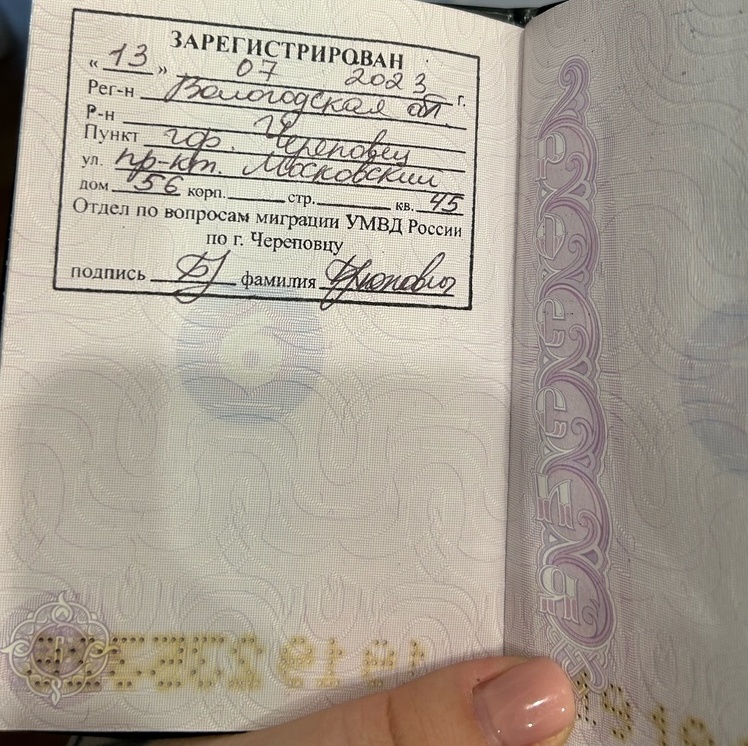 ЗАРЕГИСТРИРОВАН
« 13 » 07 2023 г.
Рег-н Вологодская обл.
Р-н
Пункт гор. Череповец
ул. пр-кт. Московский
дом 56 корп. стр. кв. 45
Отдел по вопросам миграции УМВД России
по г. Череповцу
подпись фамилия